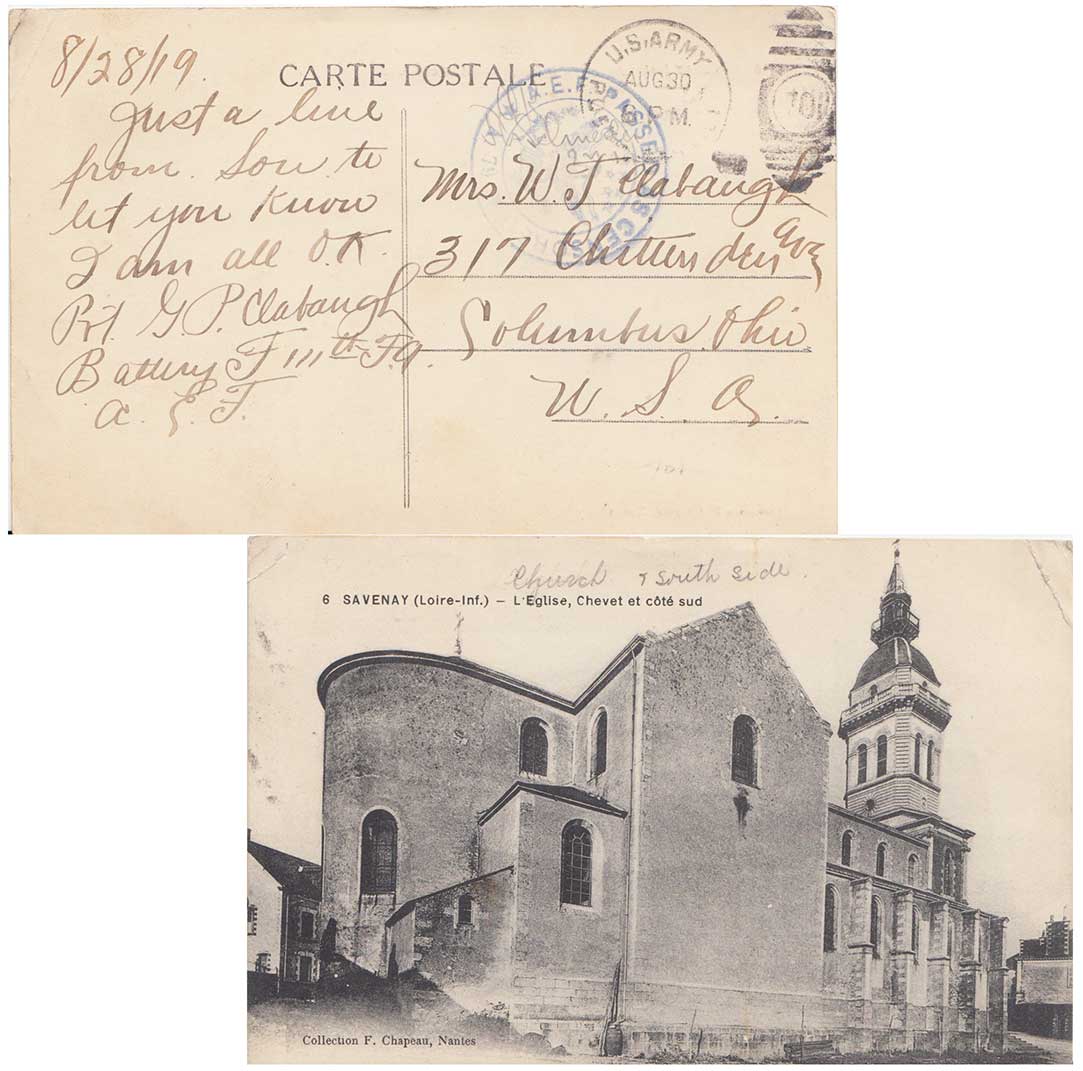 8/28/19.
CARTE POSTALE
Just a line
from Son to
let you know
I am all O.K.
Pvt G. P. Clabaugh
Battery F 111th F.A.
A. E. F.
U.S. ARMY
AUG 30
P.M.
A.E.F. PASSED AS CENSORED
Mrs. W. T Clabaugh
317 Chittenden Ave
Columbus, Ohio
U. S. A.
Church & South Side.
6 SAVENAY (Loire-Inf.) — L'Eglise, Chevet et côté sud
Collection F. Chapeau, Nantes